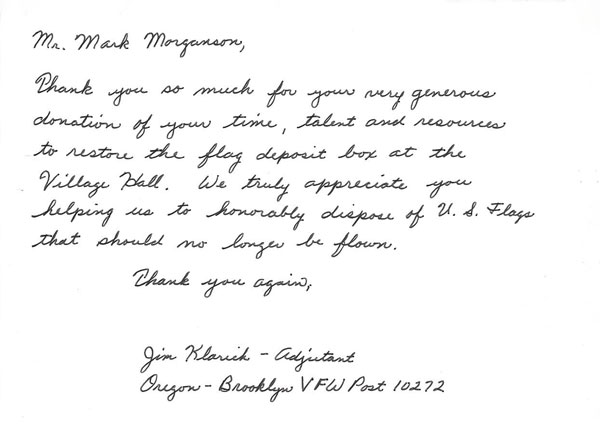 Mr. Mark Morganson,
Thank you so much for your very generous
donation of your time, talent and resources
to restore the flag deposit box at the
Village Hall. We truly appreciate you
helping us to honorably dispose of U. S. Flags
that should no longer be flown.
Thank you again,
Jim Klarich - Adjutant
Oregon - Brooklyn VFW Post 10272